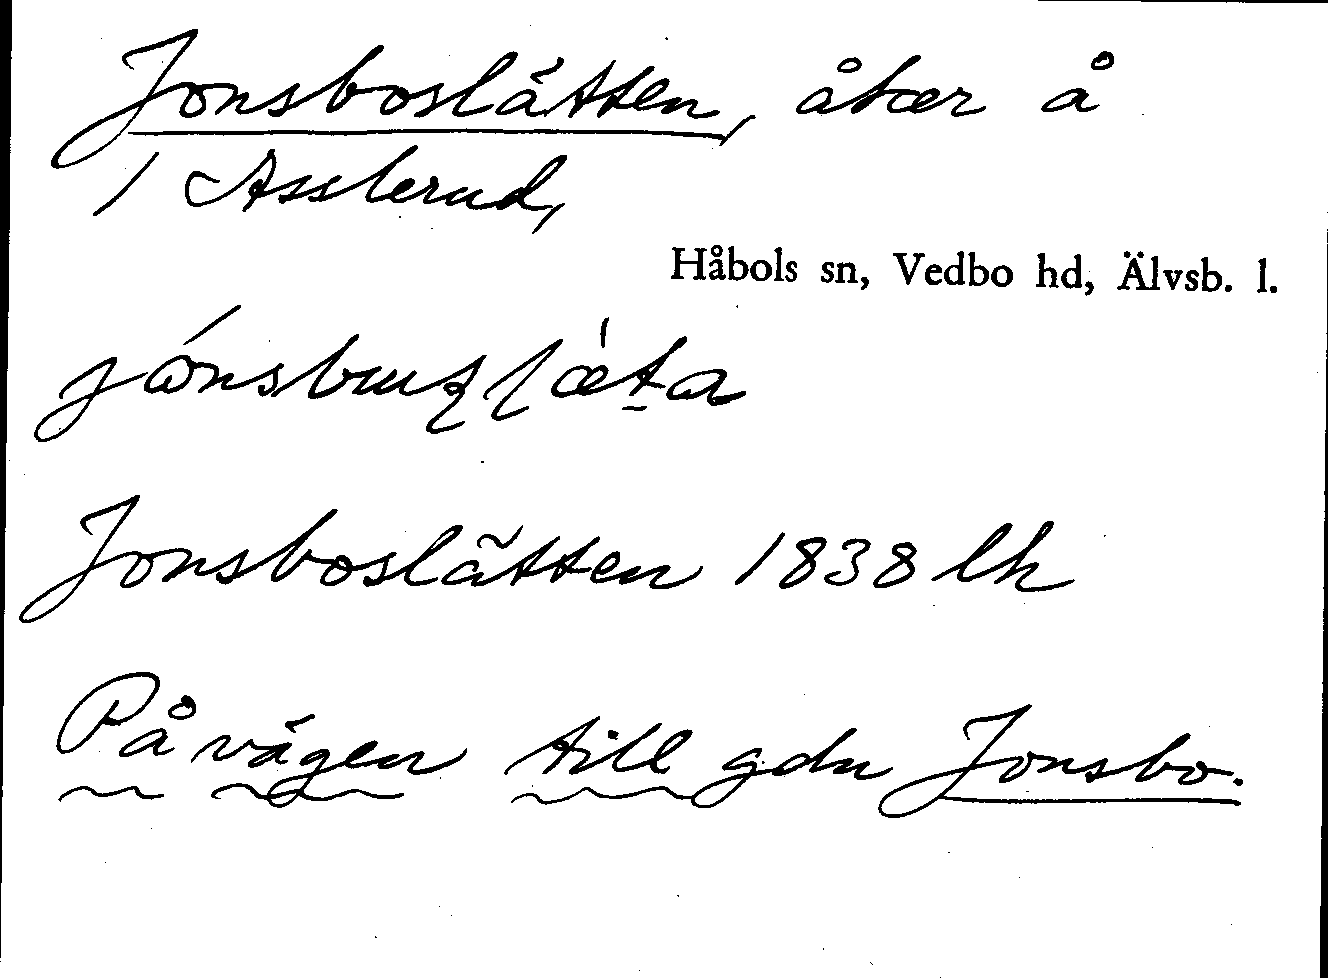 Jonsboslätten, åker å
1 Asslerud,
Håbols sn, Vedbo hd, Älvsb. l.
Jonsboslätten 1838 lh
På vägen till gdn Jonsbo.